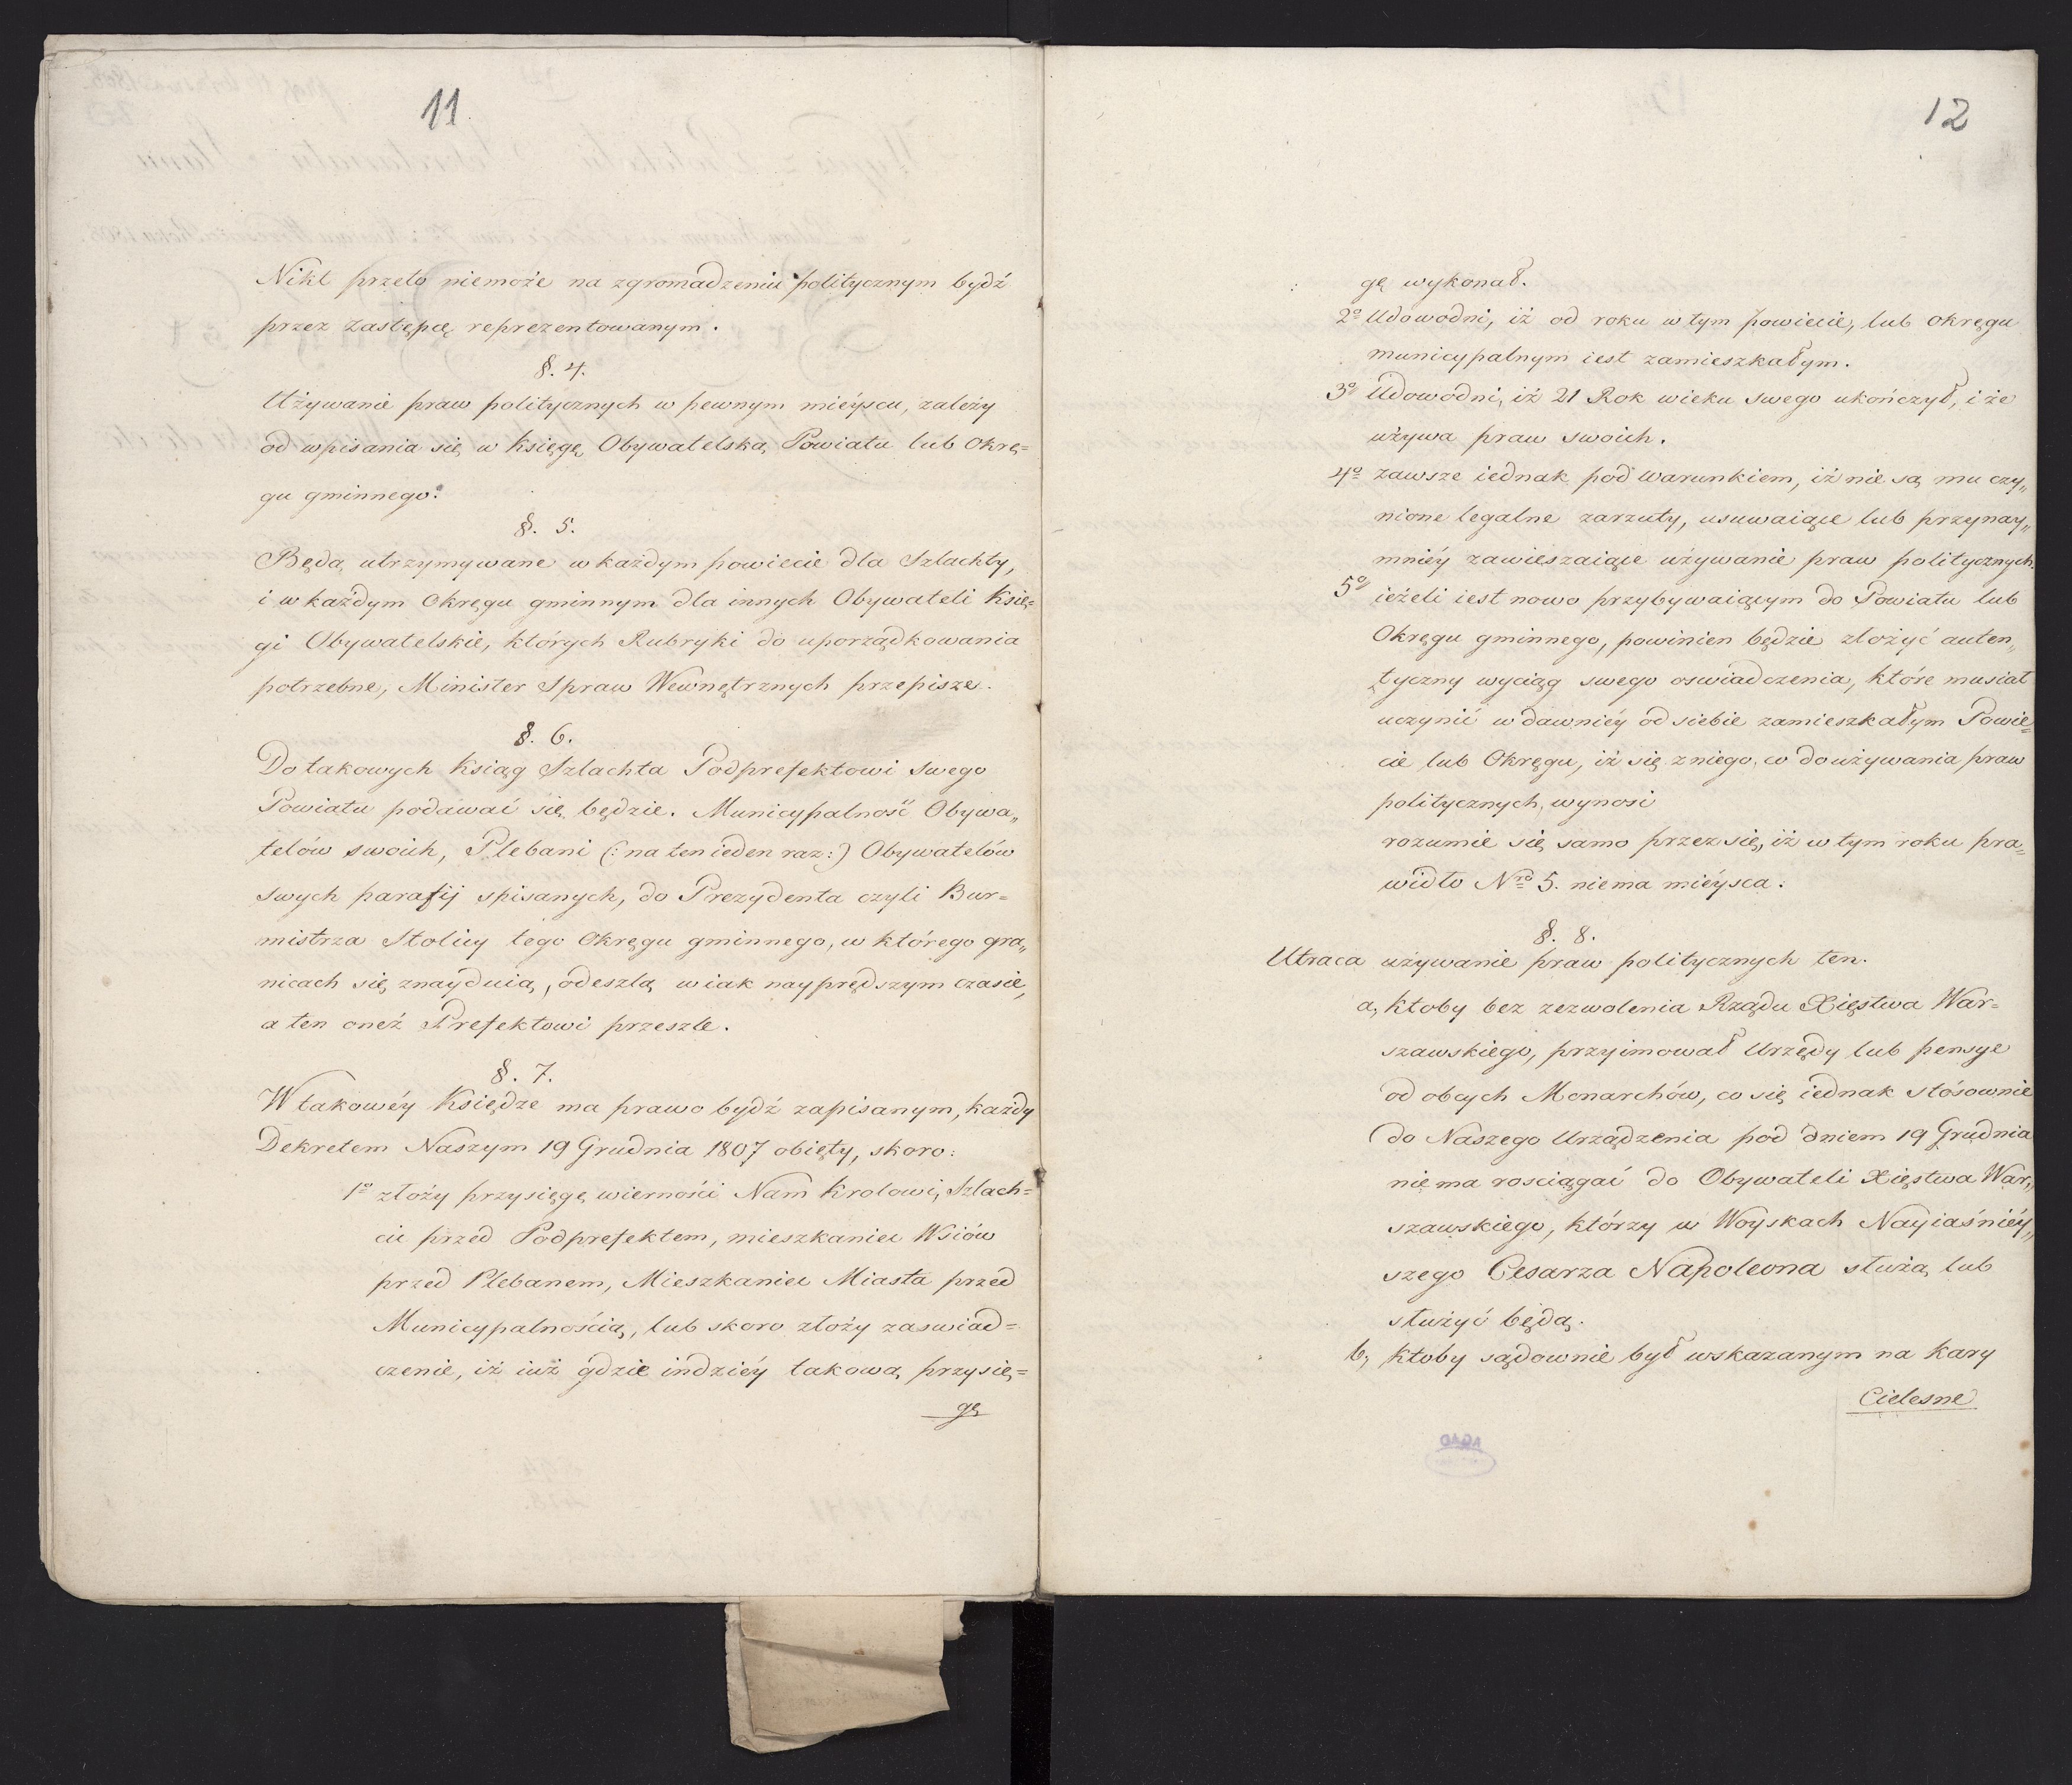 11
Nikt przeto niemoże na zgromadzeniu politycznym bydź
przez zastępcę reprezentowanym.
§. 4.
Używanie praw politycznych w pewnym mieyscu, zależy
od wpisania się w Księgę Obywatelską Powiatu lub Okrę=
gu gminnego.
§. 5.
Będą utrzymywane w każdym powiecie dla Szlachty,
i w każdym Okręgu gminnym dla innych Obywateli Księ=
gi Obywatelskie, których Rubryki do uporządkowania
potrzebne, Minister Spraw Wewnętrznych przepisze.
§. 6.
Do takowych Ksiąg Szlachta Podprefektowi swego
Powiatu podawać się będzie. Municypalność Obywa„
telów swoich, Plebani (: na ten ieden raz:) Obywatelów
swych parafij spisanych, do Prezydenta czyli Bur=
mistrza Stolicy tego Okręgu gminnego, w którego gra„
nicach się znayduią, odeszlą w iak nayprędszym czasie,
a ten oneż Prefektowi przeszle.
§. 7.
W takowéy Księdze ma prawo bydź zapisanym, każdy
Dekretem Naszym 19 Grudnia 1807 obięty, skoro:
1o złoży przysięgę wierności Nam Krolowi, Szlach=
cic przed Podprefektem, mieszkaniec Wsiów
przed Plebanem, Mieszkaniec Miasta przed
Municypalnością, lub skoro złoży zaswiad=
czenie, iż iuż gdzie indziéy takową przysię=
gę
12
gę wykonał.
2o Udowodni, iż od roku w tym powiecie, lub okręgu
municypalnym iest zamieszkałym.
3o Udowodni, iż 21 Rok wieku swego ukończył, i że
używa praw swoich.
4o zawsze iednak pod warunkiem, iż nie są mu czy„
nione legalne zarzuty, usuwaiące lub przynay„
mniéy zawieszaiące używanie praw politycznych.
5o ieżeli iest nowo przybywaiącym do Powiatu lub
Okręgu gminnego, powinien będzie złożyć auten„
tyczny wyciąg swego oswiadczenia, które musiał
uczynić w dawniéy od siebie zamieszkałym Powie=
cie lub Okręgu, iż się z niego, co do używania praw
politycznych, wynosi
rozumie się samo przez się, iż w tym roku pra=
widło Nro 5. niema mieysca.
§. 8.
Utraca używanie praw politycznych ten.
a, ktoby bez zezwolenia Rządu Xięstwa War=
szawskiego, przyimował Urzędy lub pensye
od obcych Monarchów, co się iednak stósownie
do Naszego Urządzenia pod dniem 19 Grudnia
nie ma rosciągać do Obywateli Xięstwa War„
szawskiego, którzy w Woyskach Nayiaśniéy„
szego Cesarza Napoleona służą lub
służyć będą.
b, ktoby sądownie był wskazanym na kary
Cielesne
AGAD